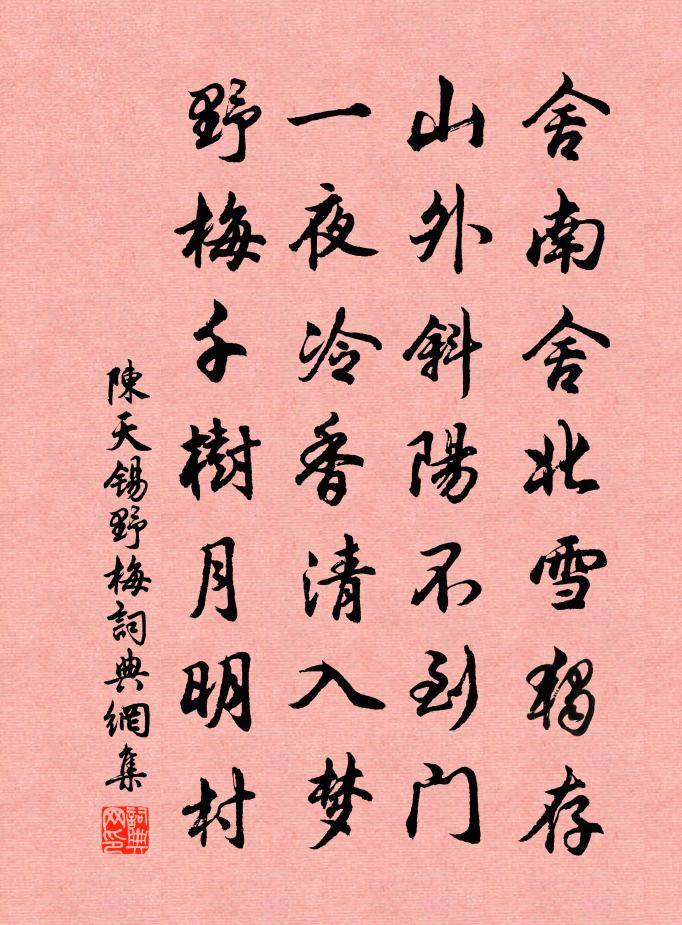 舍南舍北雪獨存
山外斜陽不到門
一夜冷香清入夢
野梅千樹月明村
陳天錫野梅詞典網集
詞典网印